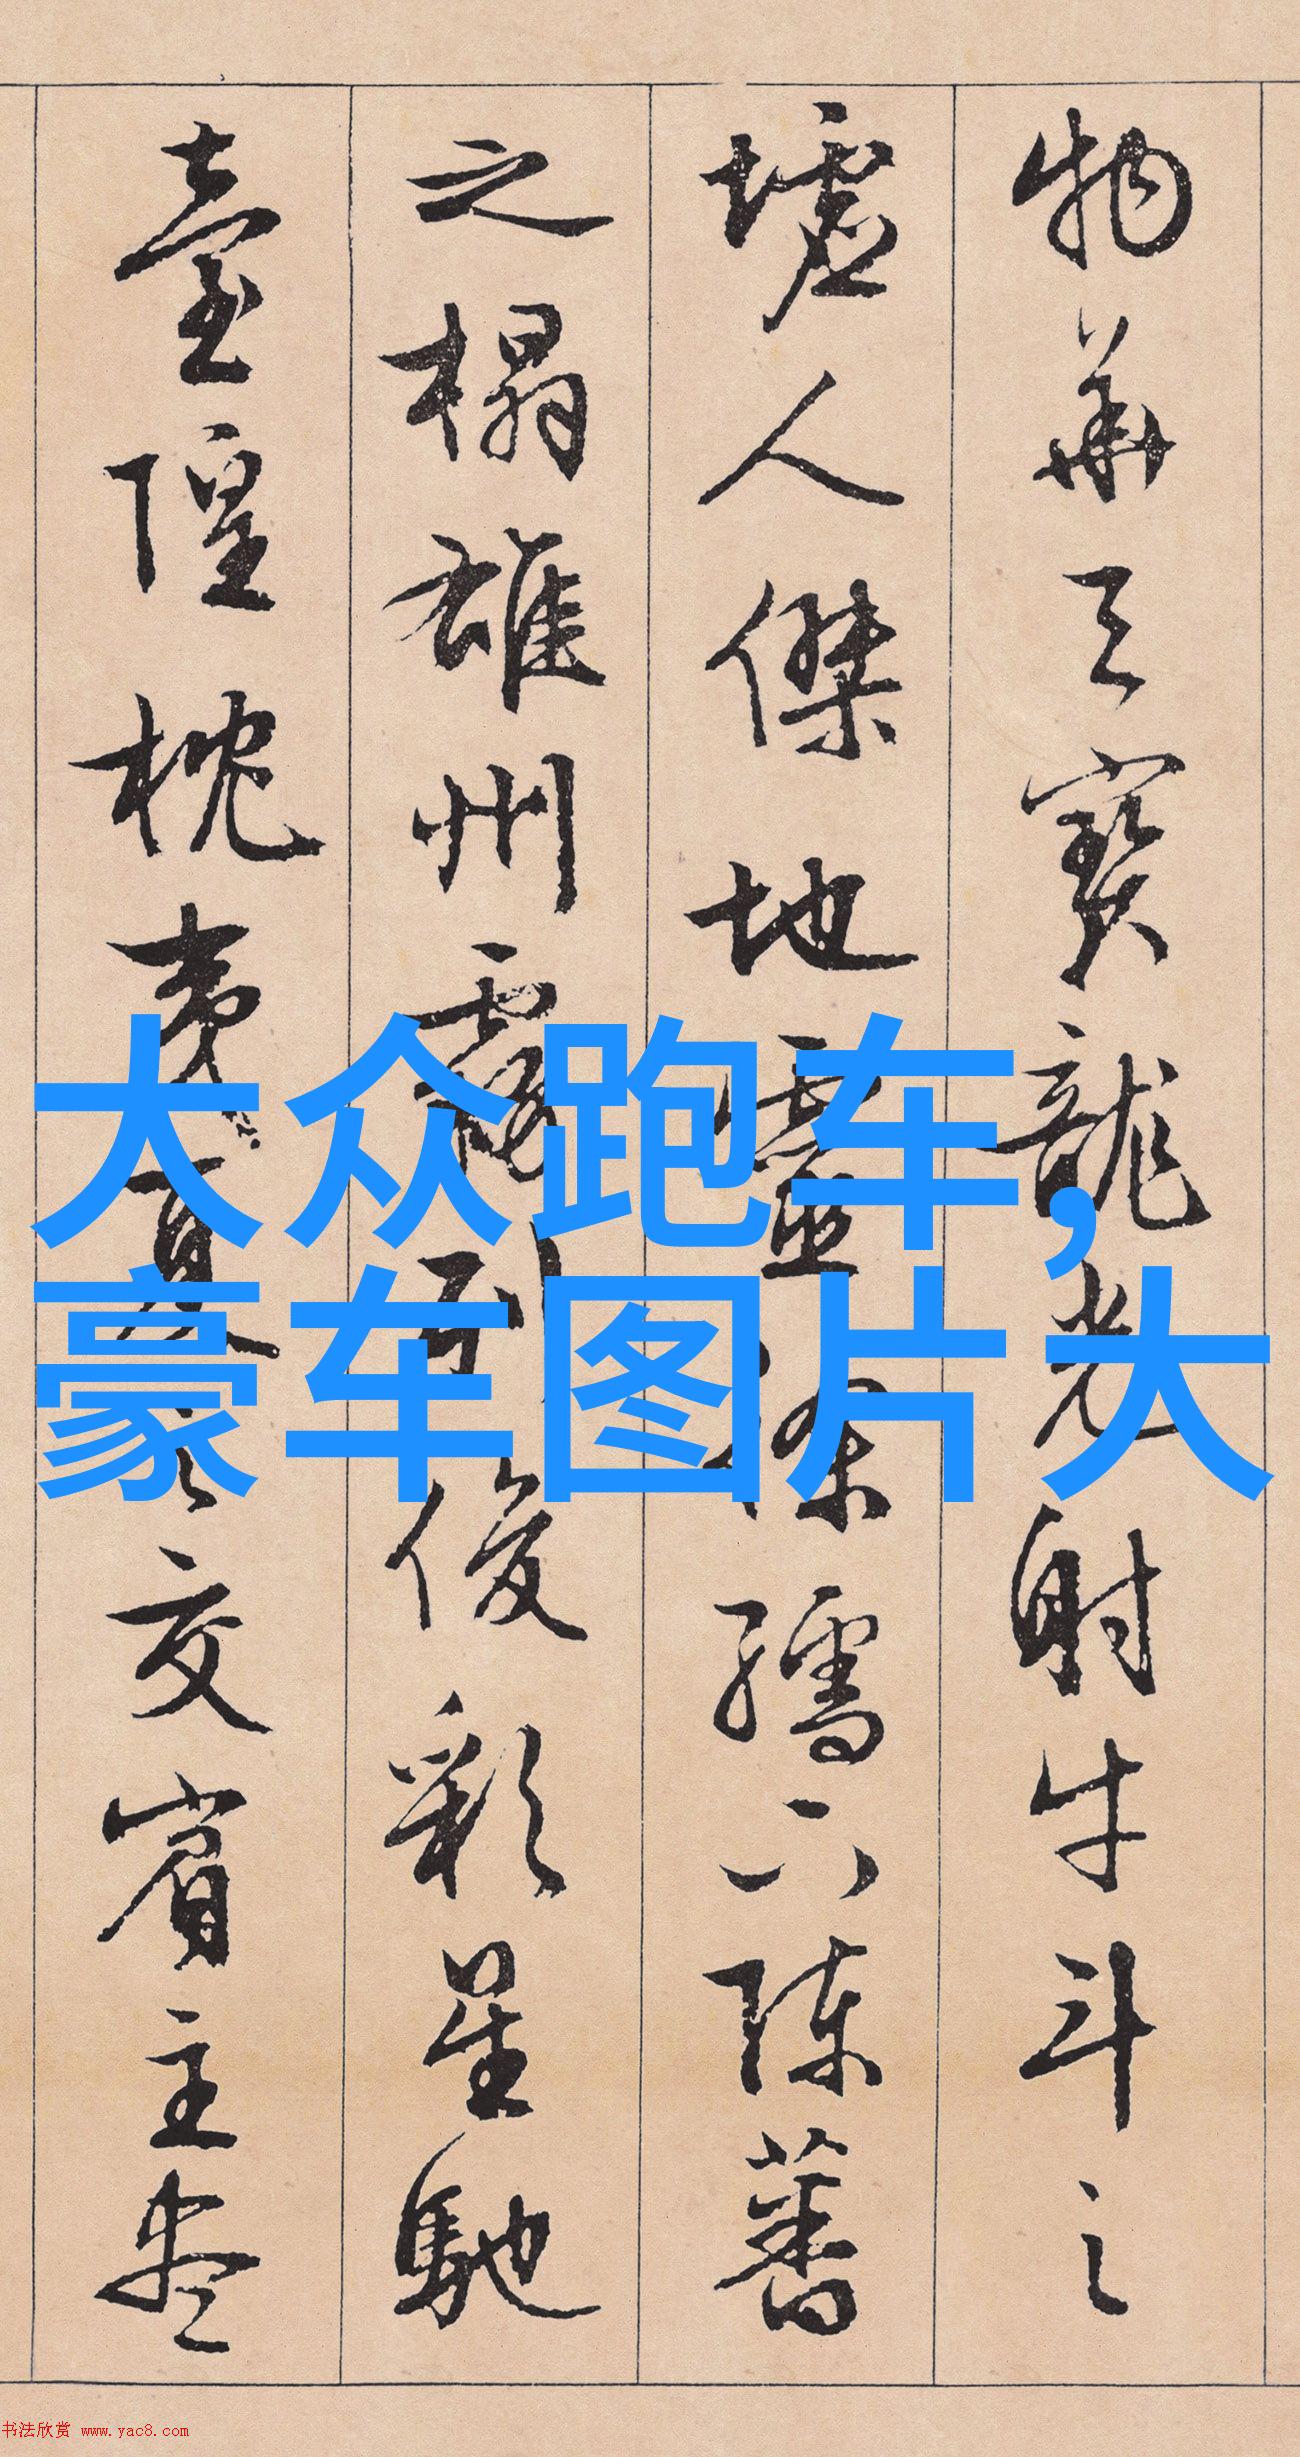 物華天寶龍光射牛斗之
墟人傑地靈徐孺下陳蕃
之榻雄州霧列俊彩星馳
臺隍枕夷夏之交賓主盡
大众跑车，
豪车图片大
书法欣赏 www.yac8.com